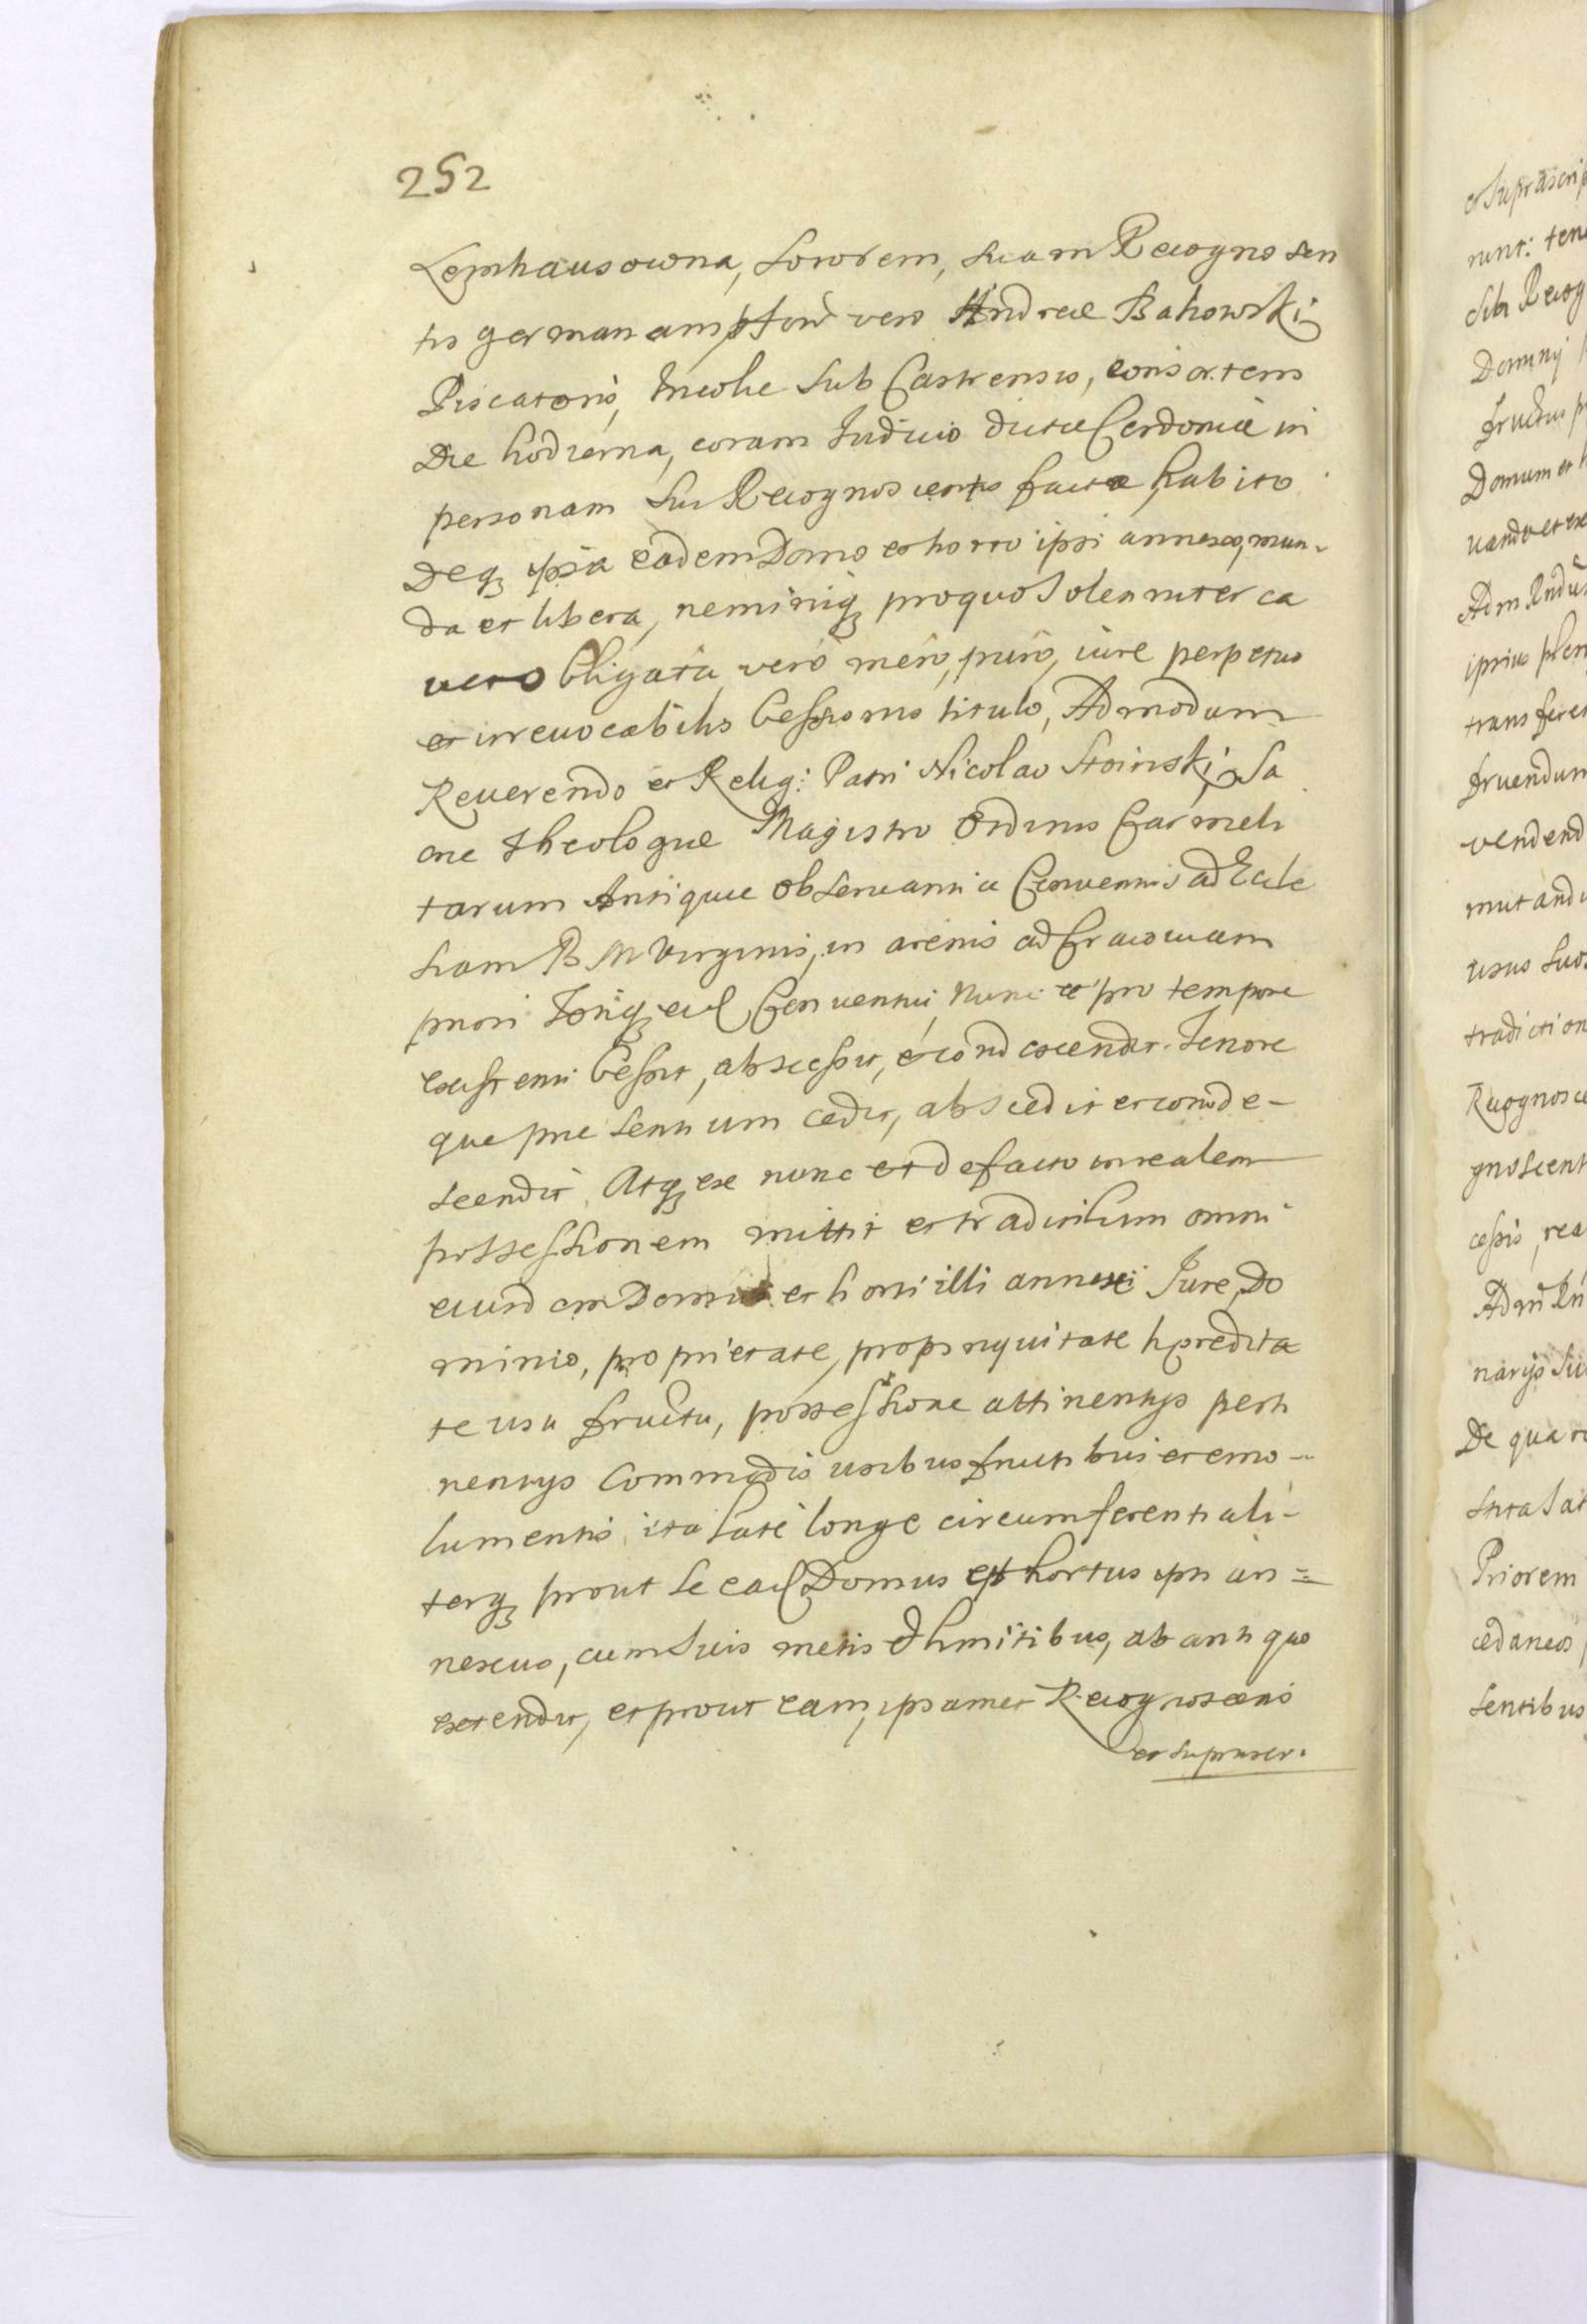 252
Lemhausowna, Sororem, suam Recognoscen
tis germanam, pstow vero Andreæ Bakowski
Piscatoris, Incolæ Sub Castrensis, consortem
Die hodierna, coram Iudicio dictæ Cerdoniæ in
personam sui Recognoscentis facta, habito
Deq ipsa eadem Domo et horto ipsi annexo, mun-
da et libera, neminiq pro quovolen inter ca
vero obligata, vero mero, puro, iure perpetuo
et irrevocabilis Cessionis titulo, Admodum
Reverendo et Relig: Patri Nicolao Stoinski Sa
cræ Theologiæ Magistro Ordinis Carmeli
tarum Antiquæ observantiæ Conventus ad Eccle
siam B M Virginis, in arenis ad Cracoviam
priori Totiq eiusd Conventui, Nunc et pro tempore
existenti Cessit, abscessit, et condescendit. Tenore
que præsentium cedit, abscedit et conde-
scendit. Atq ex nunc et de facto in realem
possessionem mittit et traditilium omni
eiusdem Domus et horti illi annexi Jure, Do
minio, proprietate, propinquitate hæredita
te usu fructu, possessione attinentijs perti
nentijs Commodis usibus fructibus et emo-
lumentis, ita late longe circumferentiali-
terq prout se ead Domus et hortus ipsi an=
nexus, cum suis metis et limitibus, ab antiquo
extendit, et prout eam, ipsamet Recognoscens
et suprascr.
et suprascrip
runt: ten
sibi Recog
Dominij
fructus p
Domum et h
vando et ex
Adm Rndu
ipsius plen
transferen
fruendum
vendend
mutandu
usus suos
tradiction
Recognosce
gnoscent
cessis, rea
Adm Rn
narijs su
De qua re
Priorem
cedaneos
sentibus